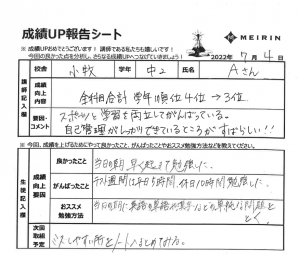 成績UP報告シート
MEIRIN
※ 成績UPおめでとうございます! 講師である私たちも嬉しいです!
今回の良かった点を分析し、さらなる成績UPへつなげていきましょう!
2022年 7月 4日
校舎 小牧 学年 中2 氏名 Aさん
講師記入欄
成績向上内容 全科目合計 学年順位 4位→3位
要因・コメント スポーツと学習を両立してがんばっている。
自己管理がしっかりできているところがすばらしい!!
※ 今回、成績を上げるためにやって良かったこと、がんばったことやおススメ勉強方法などを教えてください。
生徒記入欄
成績向上要因
良かったこと 当日の朝、早く起きて勉強した。
がんばったこと テスト週間は平日5時間、休日10時間勉強した。
おススメ勉強方法 当日の朝に英語の単語や漢字などの単純な問題を
とく。
次回取組予定